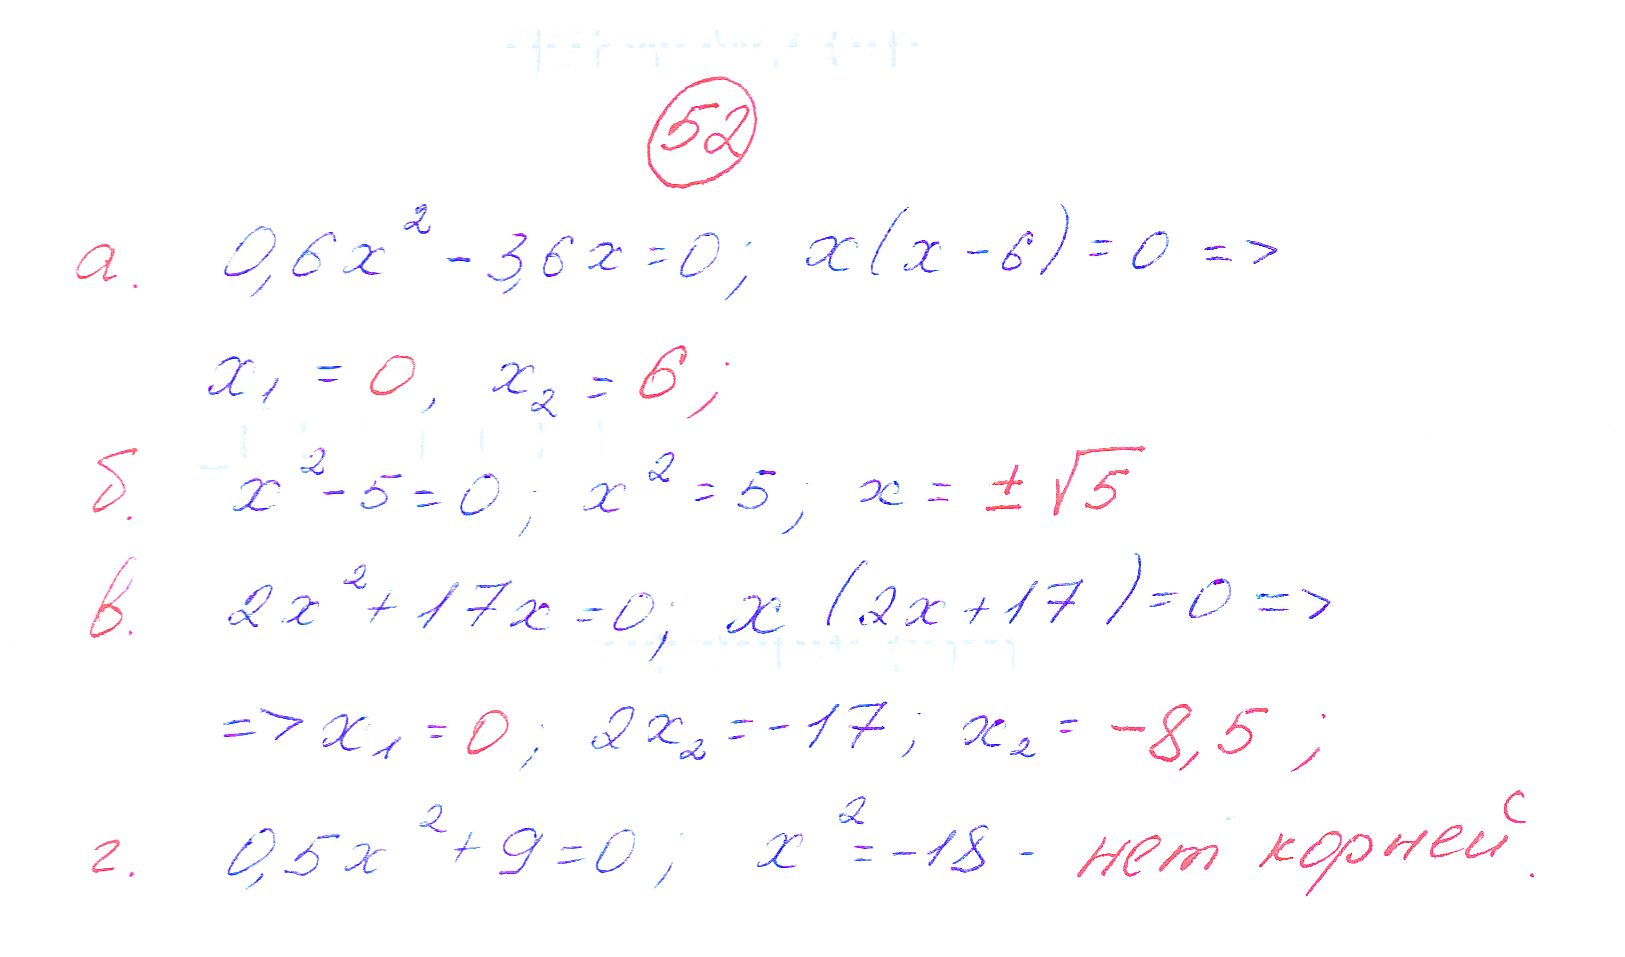 52
а. 0,6x² - 3,6x = 0; x(x - 6) = 0 =>
x₁ = 0, x₂ = 6;
б. x² - 5 = 0; x² = 5; x = ± √5
в. 2x² + 17x = 0; x (2x + 17) = 0 =>
=> x₁ = 0; 2x₂ = -17; x₂ = -8,5;
г. 0,5x² + 9 = 0; x² = -18 - нет корней.